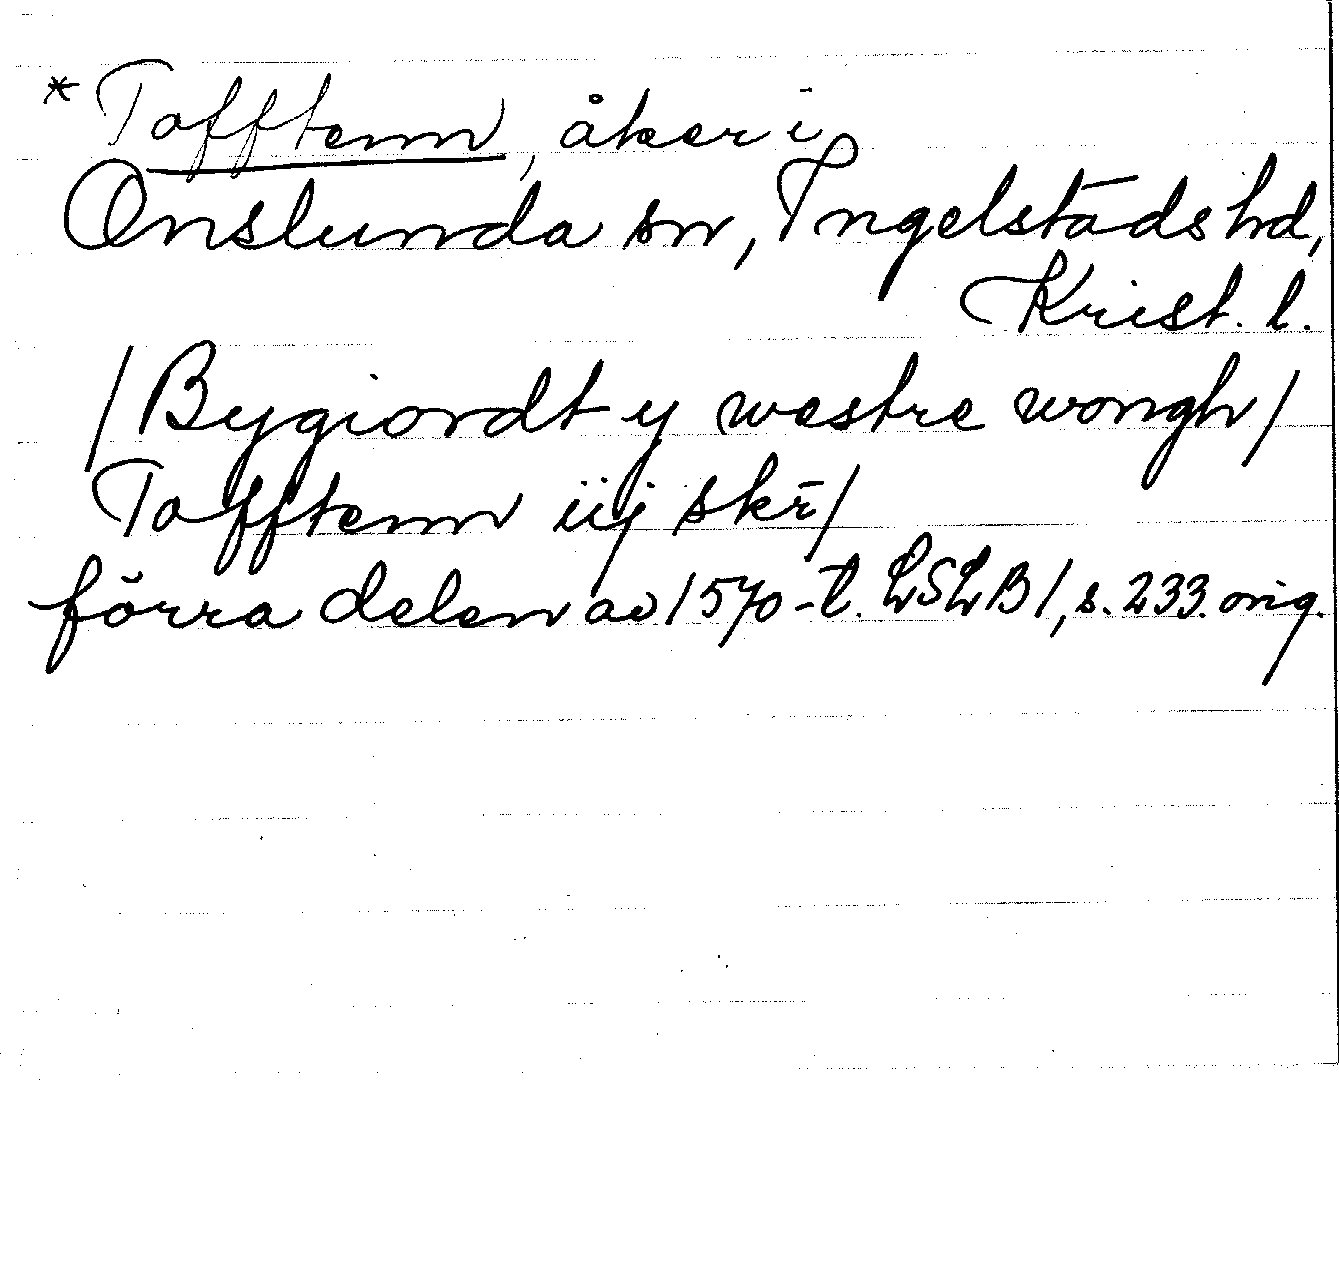 * Tofftenn, åker i
Onslunda sn, Ingelstads hd,
Krist. l.
/Bygiordt y westre wongh/
Tofftenn iij skr̄/
förra delen av 1570-t. LSLB 1, s. 233. orig.